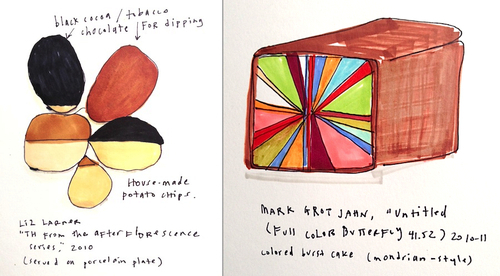 black cocoa / tobacco
chocolate FOR dipping
House-made
potato chips.
Liz Larner
"TH From the AFTER FLORESCENCE
series," 2010
(served on porcelain plate)
MARK GROTJAHN, "Untitled
(Full Color Butterfly 41.52) 2010-11
colored bundt cake (mondrian-style)